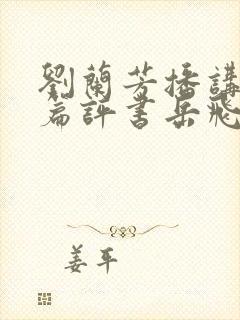 劉蘭芳播講
篇評書岳飛
姜平